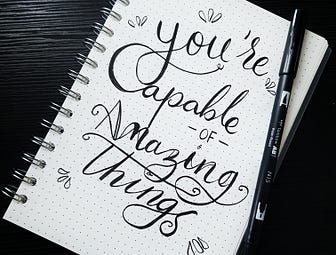 you're
Capable
-OF-
Amazing
things
N15